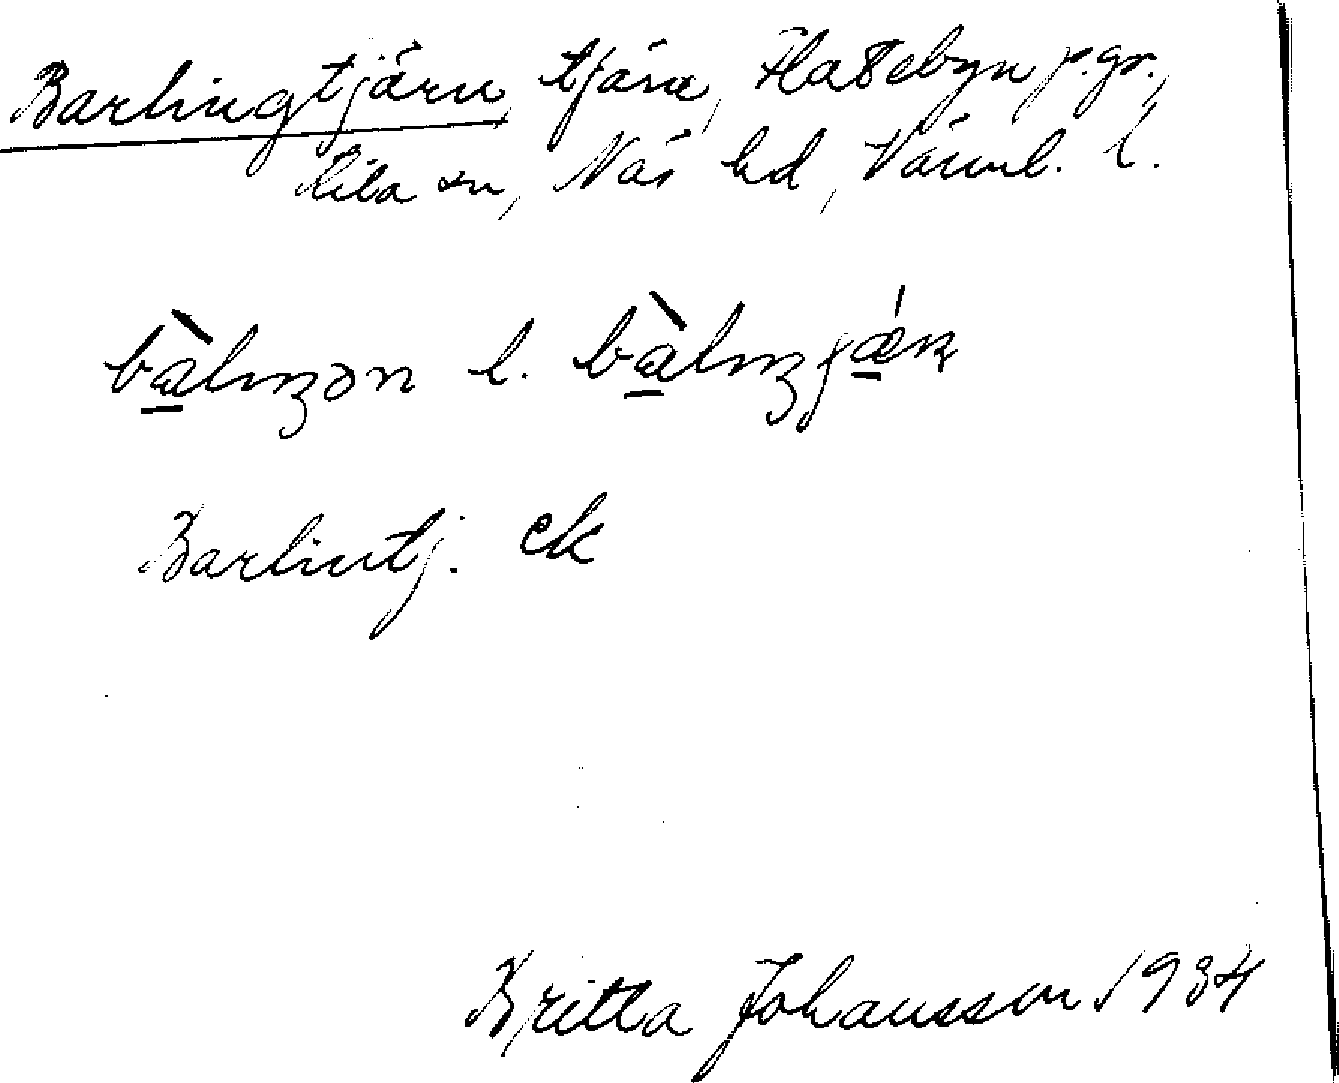 Barlingtjärn, tjärn, Flatebyn p.gr.,
Tila sn, Näs hd, Värml. l.
bà̠lıŋən l. bà̠lıŋjǽ̠ɳ
Barlintj. ek
Britta Johansson 1934